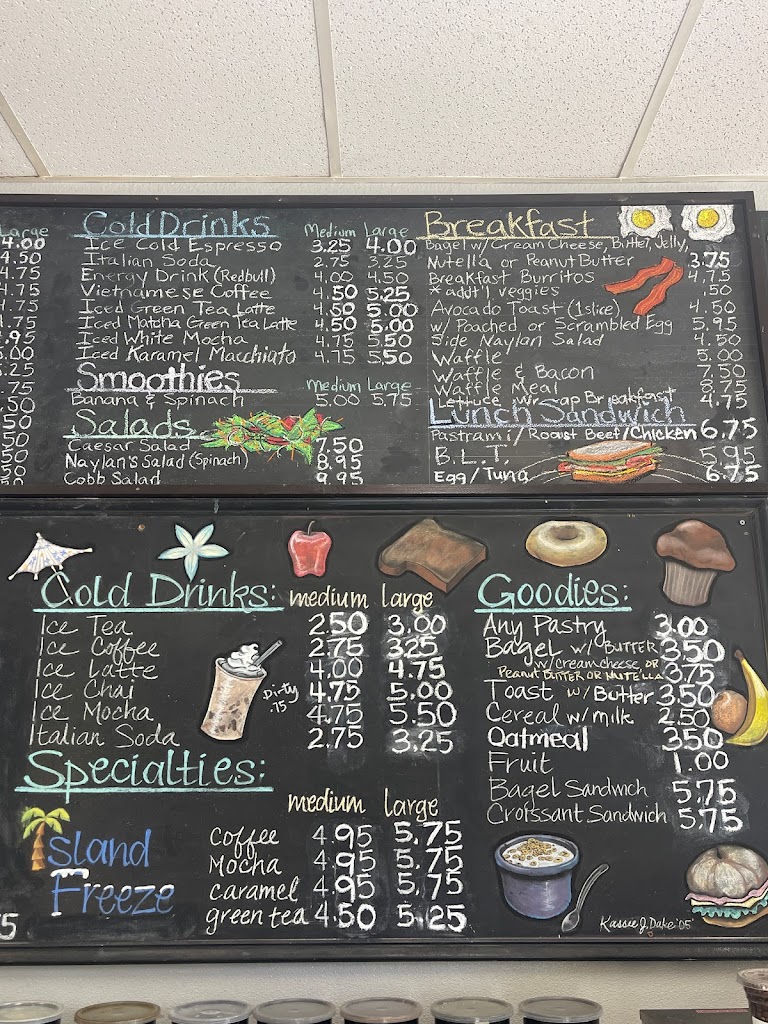 Large
4.00
4.50
4.75
4.75
4.75
Cold Drinks Medium Large
Ice Cold Espresso 3.25 4.00
Italian Soda 2.75 3.25
Energy Drink (Redbull) 4.00 4.50
Vietnamese Coffee 4.50 5.25
Iced Green Tea Latte 4.50 5.00
Iced Matcha Green Tea Latte 4.50 5.00
Iced White Mocha 4.75 5.50
Iced Karamel Macchiato 4.75 5.50
Smoothies Medium Large
Banana & Spinach 5.00 5.75
Salads
Caesar Salad 7.50
Naylan's Salad (Spinach) 8.95
Cobb Salad 9.95
Breakfast
Bagel w/ Cream Cheese, Butter, Jelly,
Nutella or Peanut Butter 3.75
Breakfast Burritos 4.75
* add'l veggies .50
Avocado Toast (1 slice) 4.50
w/ Poached or Scrambled Egg 5.95
Side Naylan Salad 4.50
Waffle 5.00
Waffle & Bacon 7.50
Waffle Meal 8.75
Lettuce Wrap Breakfast 4.75
Lunch Sandwich
Pastrami / Roast Beef / Chicken 6.75
B.L.T. 5.95
Egg / Tuna 6.75
Cold Drinks: medium large
Ice Tea 2.50 3.00
Ice Coffee 2.75 3.25
Ice Latte 4.00 4.75
Ice Chai 4.75 5.00
Dirty .75
Ice Mocha 4.75 5.50
Italian Soda 2.75 3.25
Specialties:
medium large
Island Freeze
Coffee 4.95 5.75
Mocha 4.95 5.75
caramel 4.95 5.75
green tea 4.50 5.25
Goodies:
Any Pastry 3.00
Bagel w/ Butter 3.50
w/ cream cheese or
Peanut Butter or Nutella 3.75
Toast w/ Butter 3.50
Cereal w/ milk 2.50
Oatmeal 3.50
Fruit 1.00
Bagel Sandwich 5.75
Croissant Sandwich 5.75
Kassie J. Dake '05